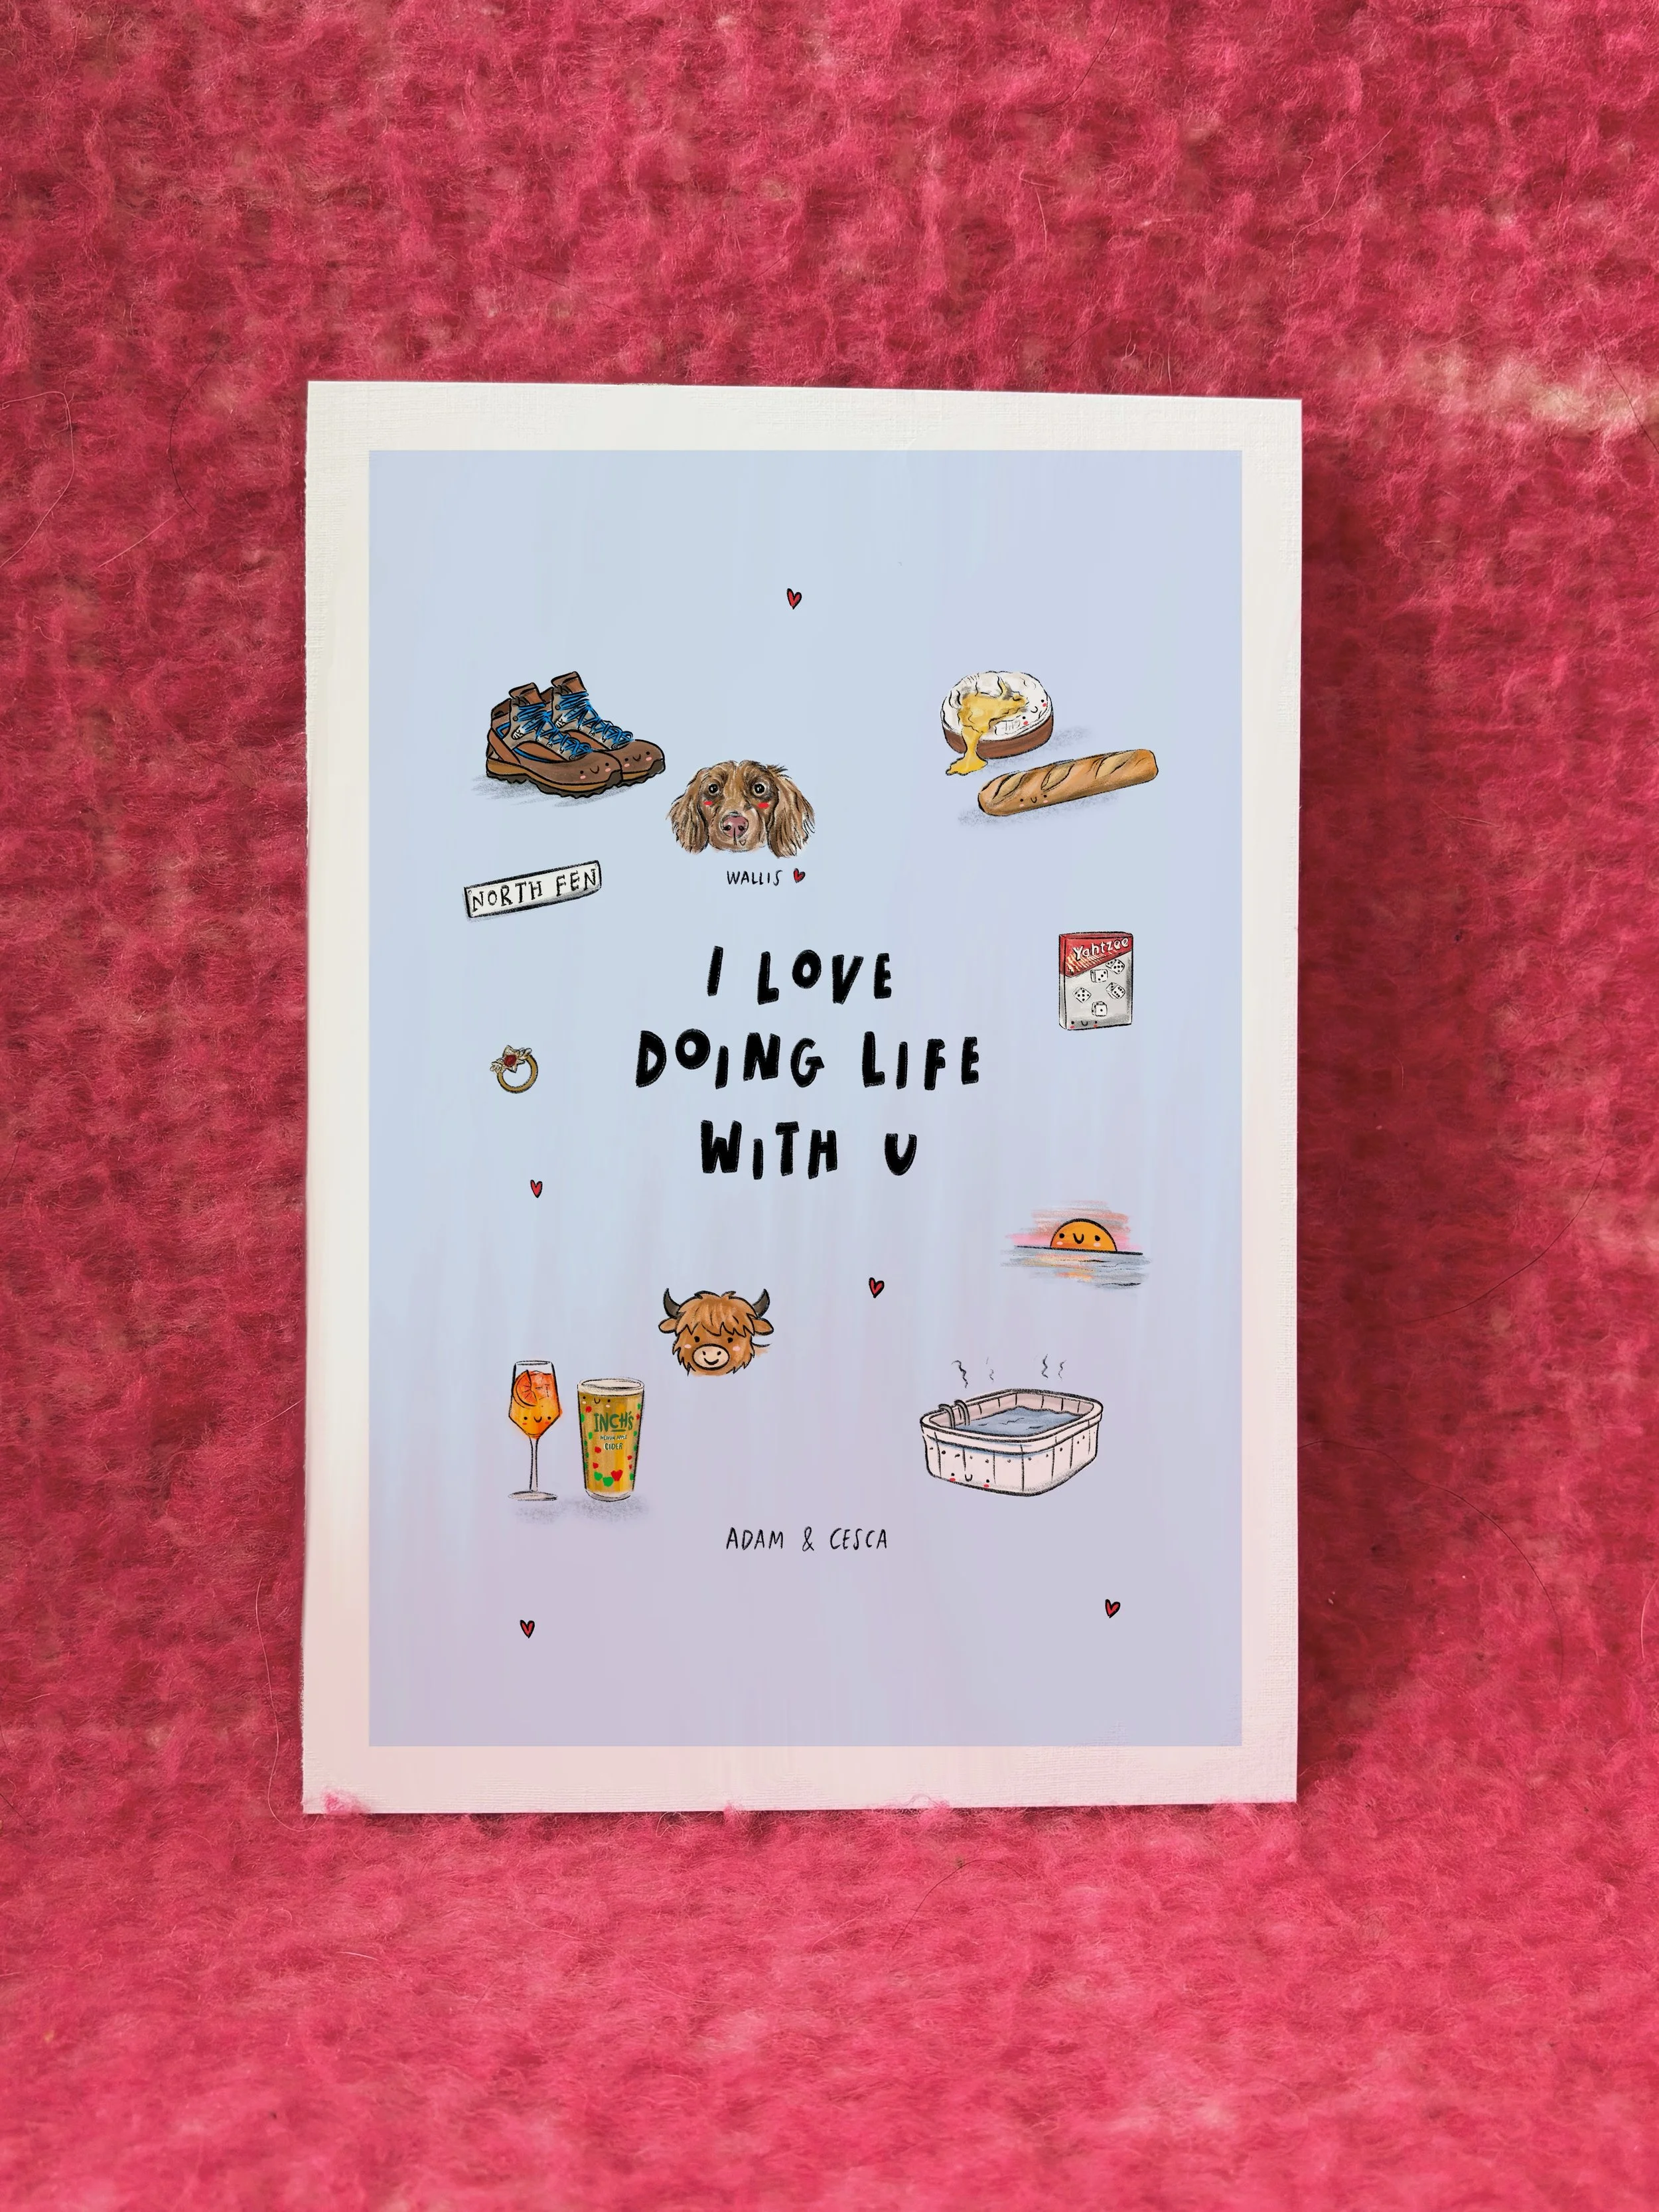 WALLIS
NORTH FEN
Yahtzee
I LOVE
DOING LIFE
WITH U
INCH'S
MEDIUM APPLE
CIDER
ADAM & CESCA